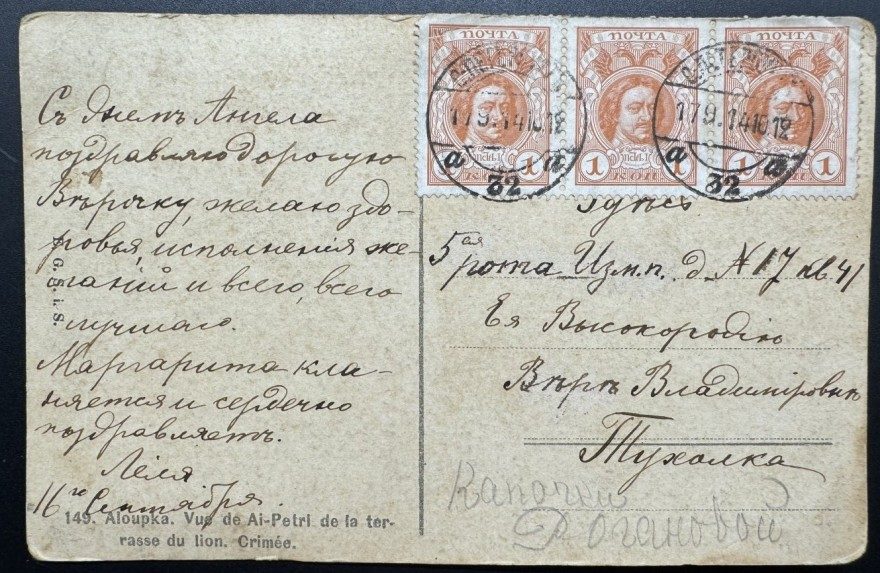 Съ днемъ Ангела
поздравляю дорогую
Вѣрочку, желаю здо-
ровья, исполненія же-
ланій и всего, всего
лучшаго.
Маргарита кла-
няется и сердечно
поздравляетъ.
Лёля
16го Сентября.
149. Aloupka. Vue de Ai-Petri de la ter-
rasse du lion. Crimée.
ПОЧТА
ПОЧТА
ПОЧТА
1
1 1
1
КОП.
17.9.14 10
17.9.14 10
a a
32
a a
32
Здѣсь
5ая рота Изм.п. д. N 17 кв. 41
Ея Высокородію
Вѣрѣ Владиміровнѣ
Тухолка